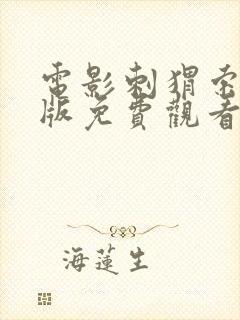 電影刺猬
版免費觀看
海蓮生